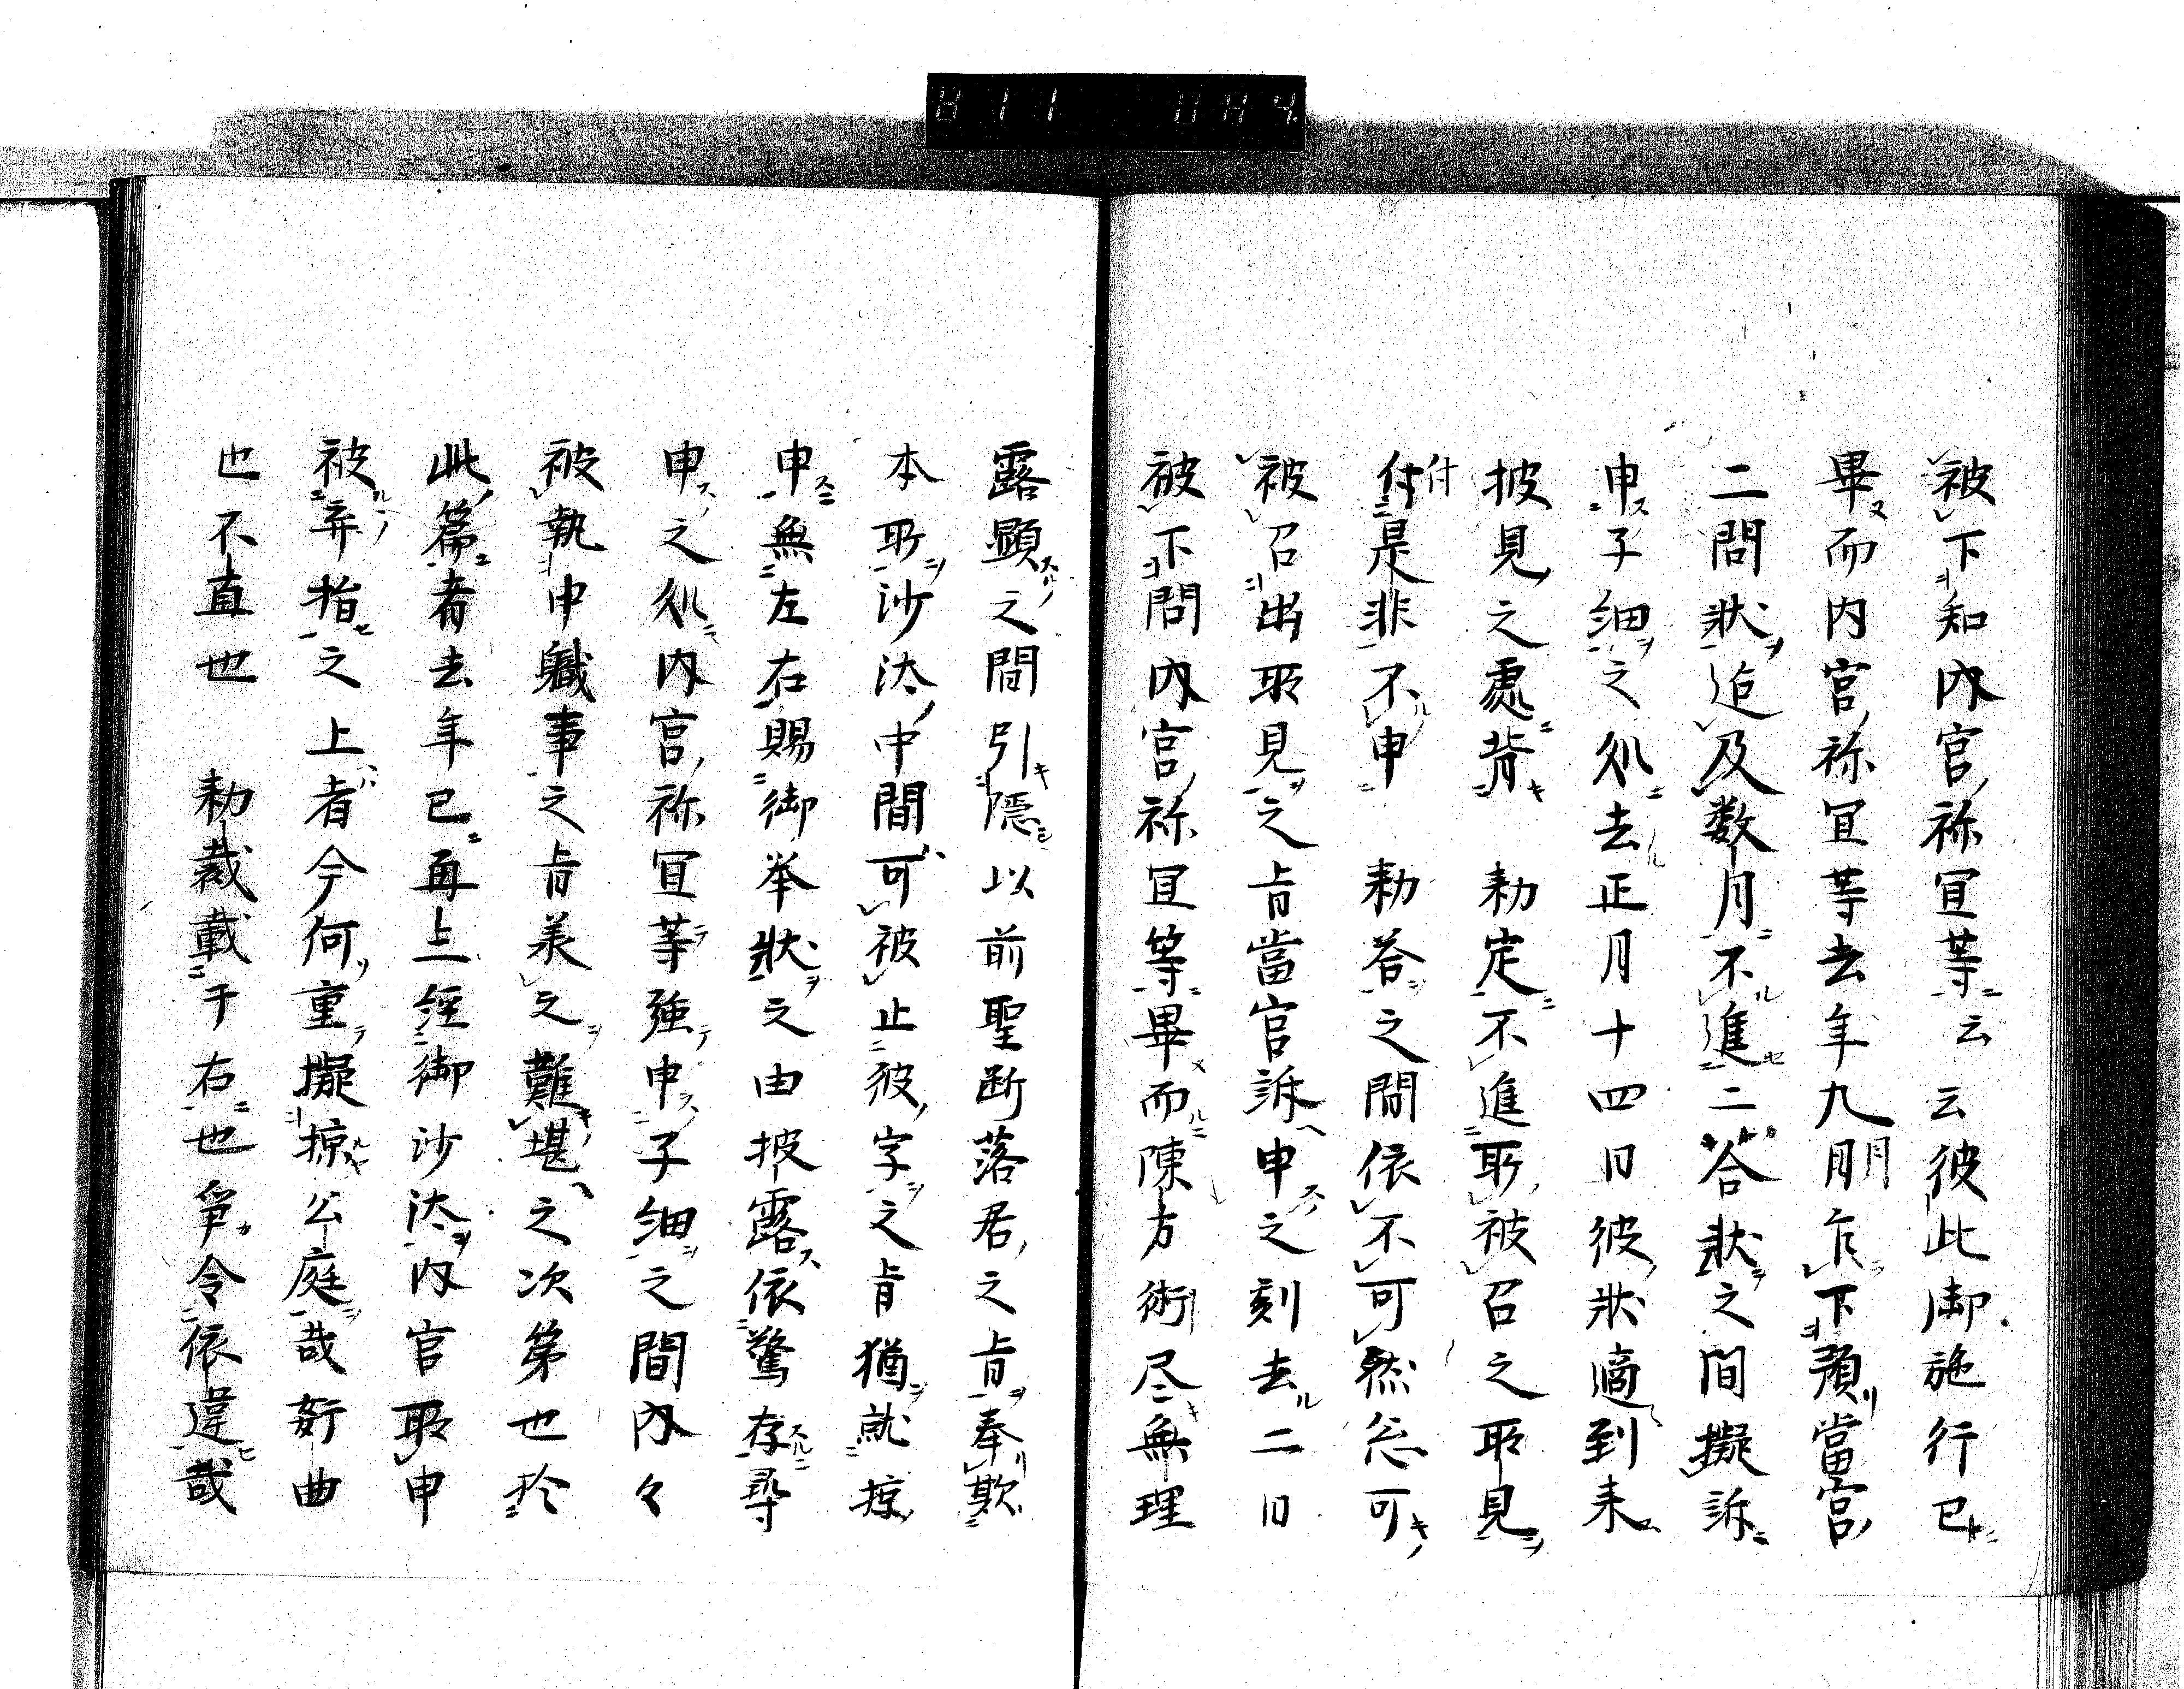 被下知内宮祢冝等云云彼此御施行已
畢而内宮祢冝等去年九月乍下預當宮
二問状迄及数月不進二答状之間擬訴
申子細之処去正月十四日彼状適到来
披見之處背　勅定不進所被召之所見
付是非不申　勅答之間依不可然忩可
被召出所見之旨當官訴申之刻去二日
被下問内宮祢冝等畢而陳方術尽無理
露顕之間引隠以前聖断落居之旨奉欺
本所沙汰中間可被止彼字之旨猶就掠
申無左右賜御挙状之由披露依驚存尋
申之処内宮祢冝等強申子細之間内々
被執申軄事之旨羕之難堪之次第也於
此篇者去年已再上経御沙汰内宮所申
被弃捐之上者今何重擬掠公庭哉姧曲
也不直也　勅裁載于右也争令依違哉